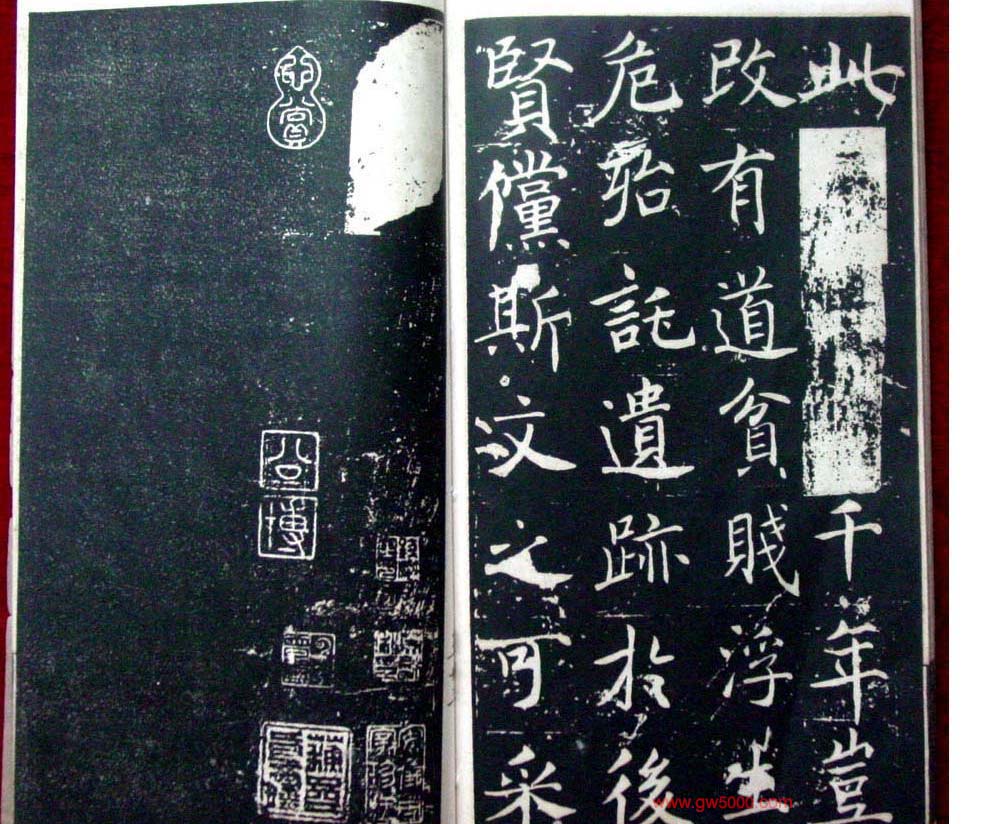 此千年豈
改有道貧賤浮生
危殆託遺跡於後
賢儻斯文之可采
公
博
www.gw5000.com